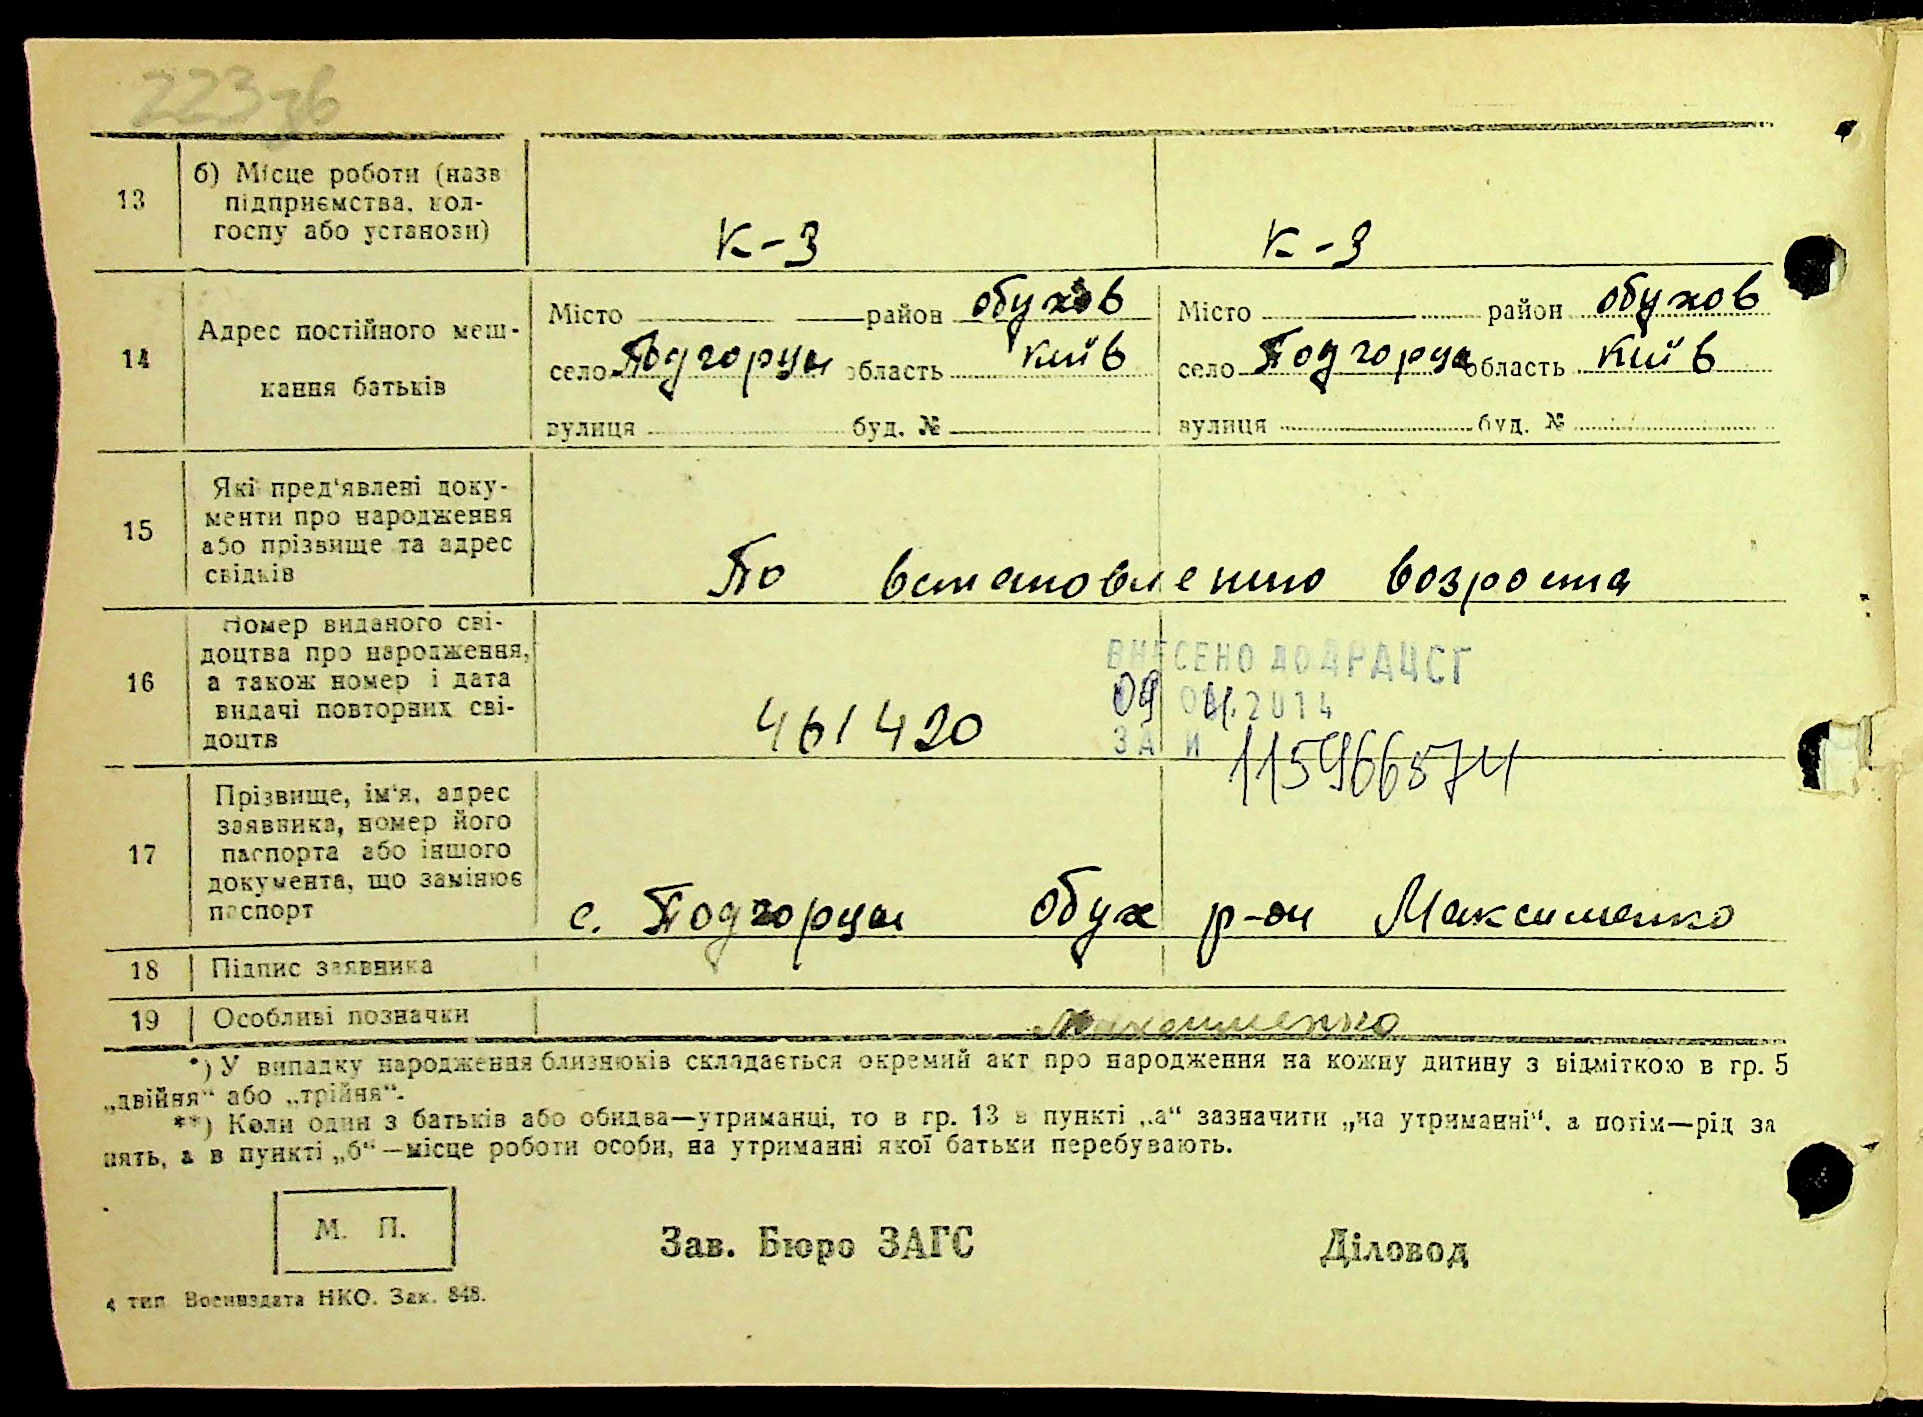 223зв
13
б) Місце роботи (назв
підприємства, кол-
госпу або установи)
К-З
К-З
14
Адрес постійного меш-
кання батьків
Місто район Обухов
село Подгорцы область Київ
вулиця буд. №
Місто район Обухов
село Подгорцы область Київ
вулиця буд. №
15
Які пред'явлені доку-
менти про народження
або прізвище та адрес
свідків
По встановлению возроста
16
Номер виданого сві-
доцтва про народження,
а також номер і дата
видачі повторних сві-
доцтв
461420
ВНЕСЕНО ДО ДРАЦСГ
09 04.2014
ЗА И
17
Прізвище, ім'я, адрес
заявника, номер його
паспорта або іншого
документа, що замінює
паспорт
с. Подгорцы Обух р-он Максименко
18
Підпис заявника
19
Особливі позначки
Максименко
*) У випадку народження близнюків складається окремий акт про народження на кожну дитину з відміткою в гр. 5
„двійня“ або „трійня“.
**) Коли один з батьків або обидва—утриманці, то в гр. 13 в пункті „а“ зазначити „на утриманні“, а потім—рід за
нять, а в пункті „б“—місце роботи особи, на утриманні якої батьки перебувають.
М. П.
Зав. Бюро ЗАГС
Діловод
4 тип Воениздата НКО. Зак. 848.